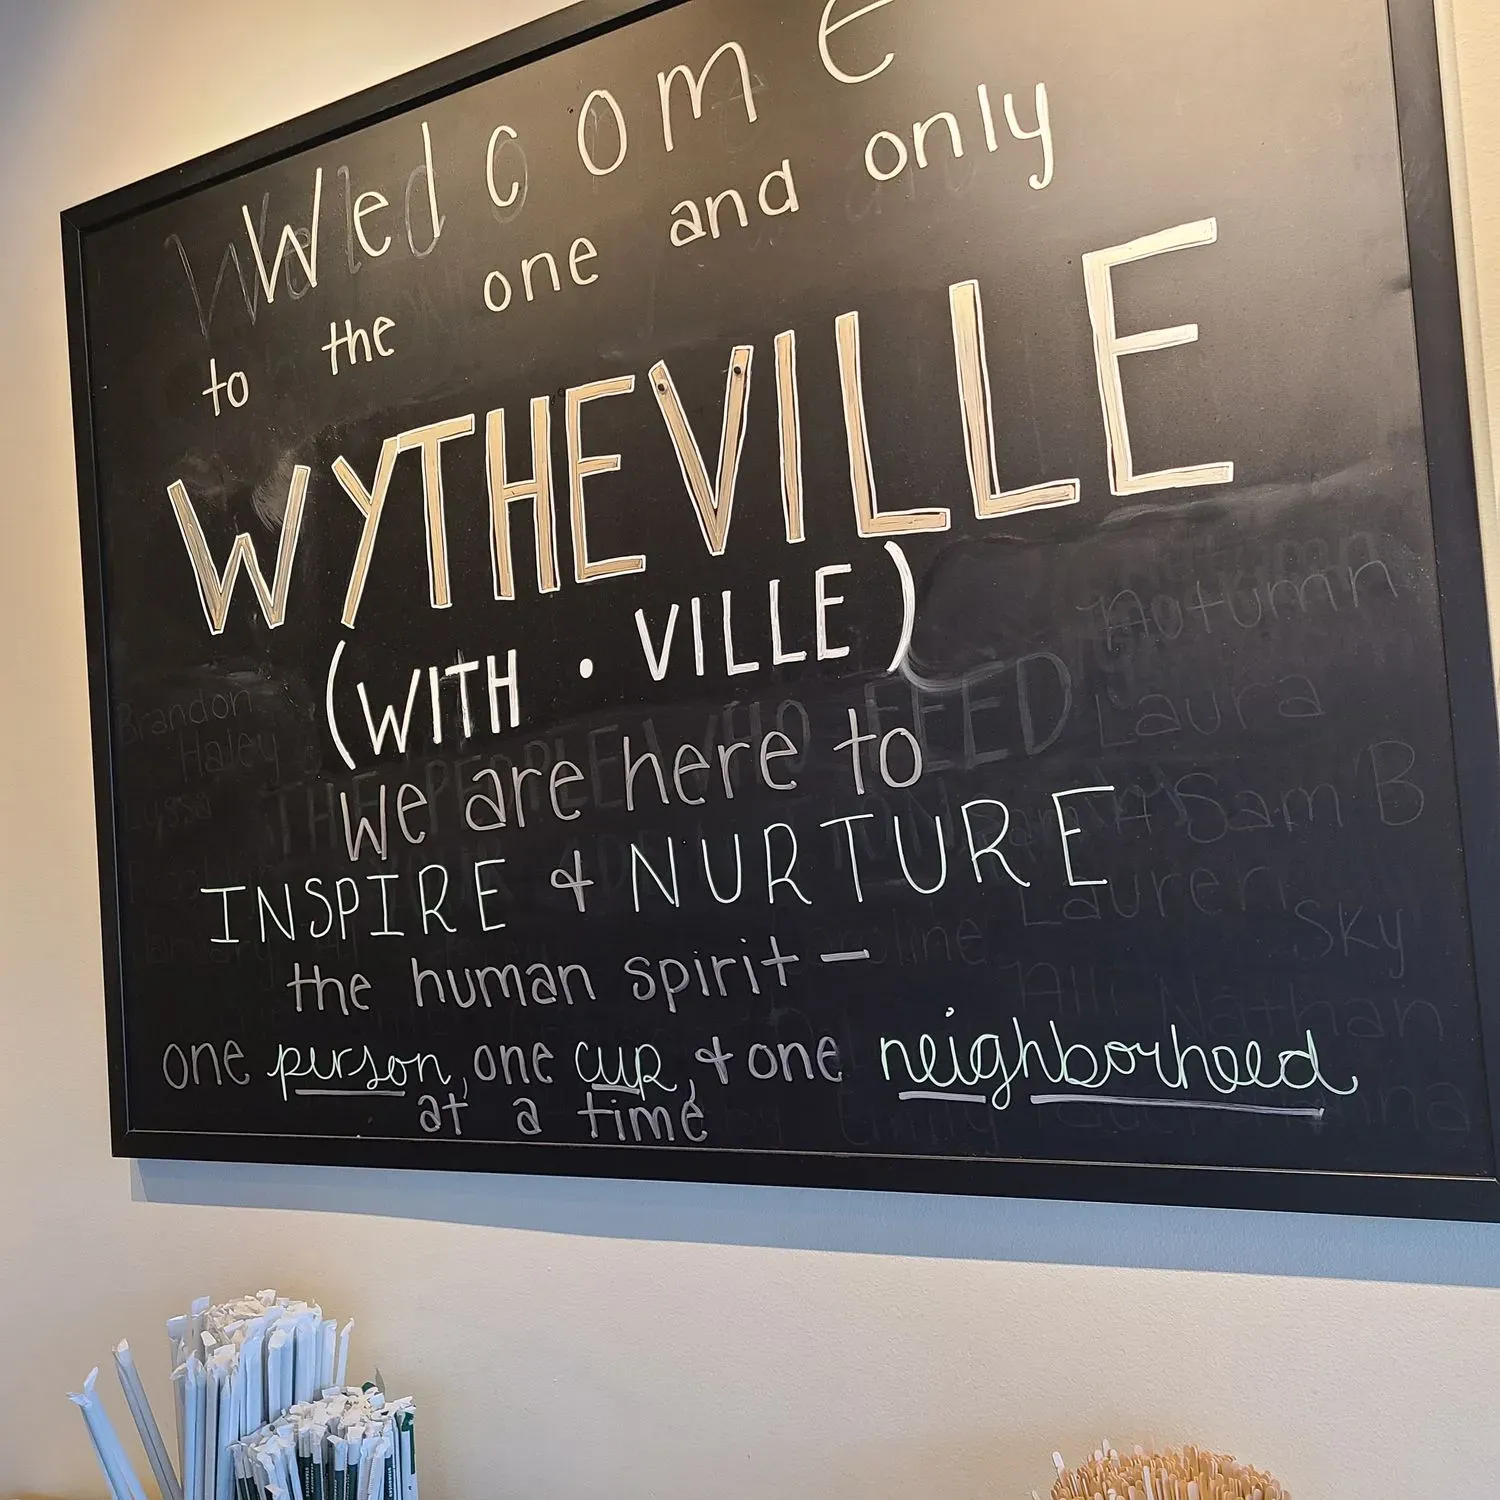 Welcome
to the one and only
WYTHEVILLE
(WITH • VILLE)
We are here to
INSPIRE & NURTURE
the human spirit —
one person, one cup, & one neighborhood
at a time
Brandon
Haley
Lyssa
THE PEOPLE WHO FEED
Autumn
Laura
Sam B
Lauren
Sky
Nathan